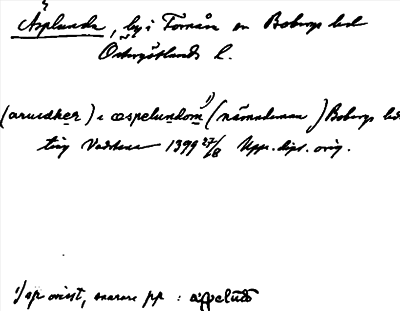 Äsplunda, by i Fornåsa sn Bobergs hd
Östergötlands l.
(aruedher) i æspelundom 1) (nämndeman) Bobergs hds
ting Vadstena 1399 27/8 Upps. dipl. orig.
1) sp ovisst, snarare pp :